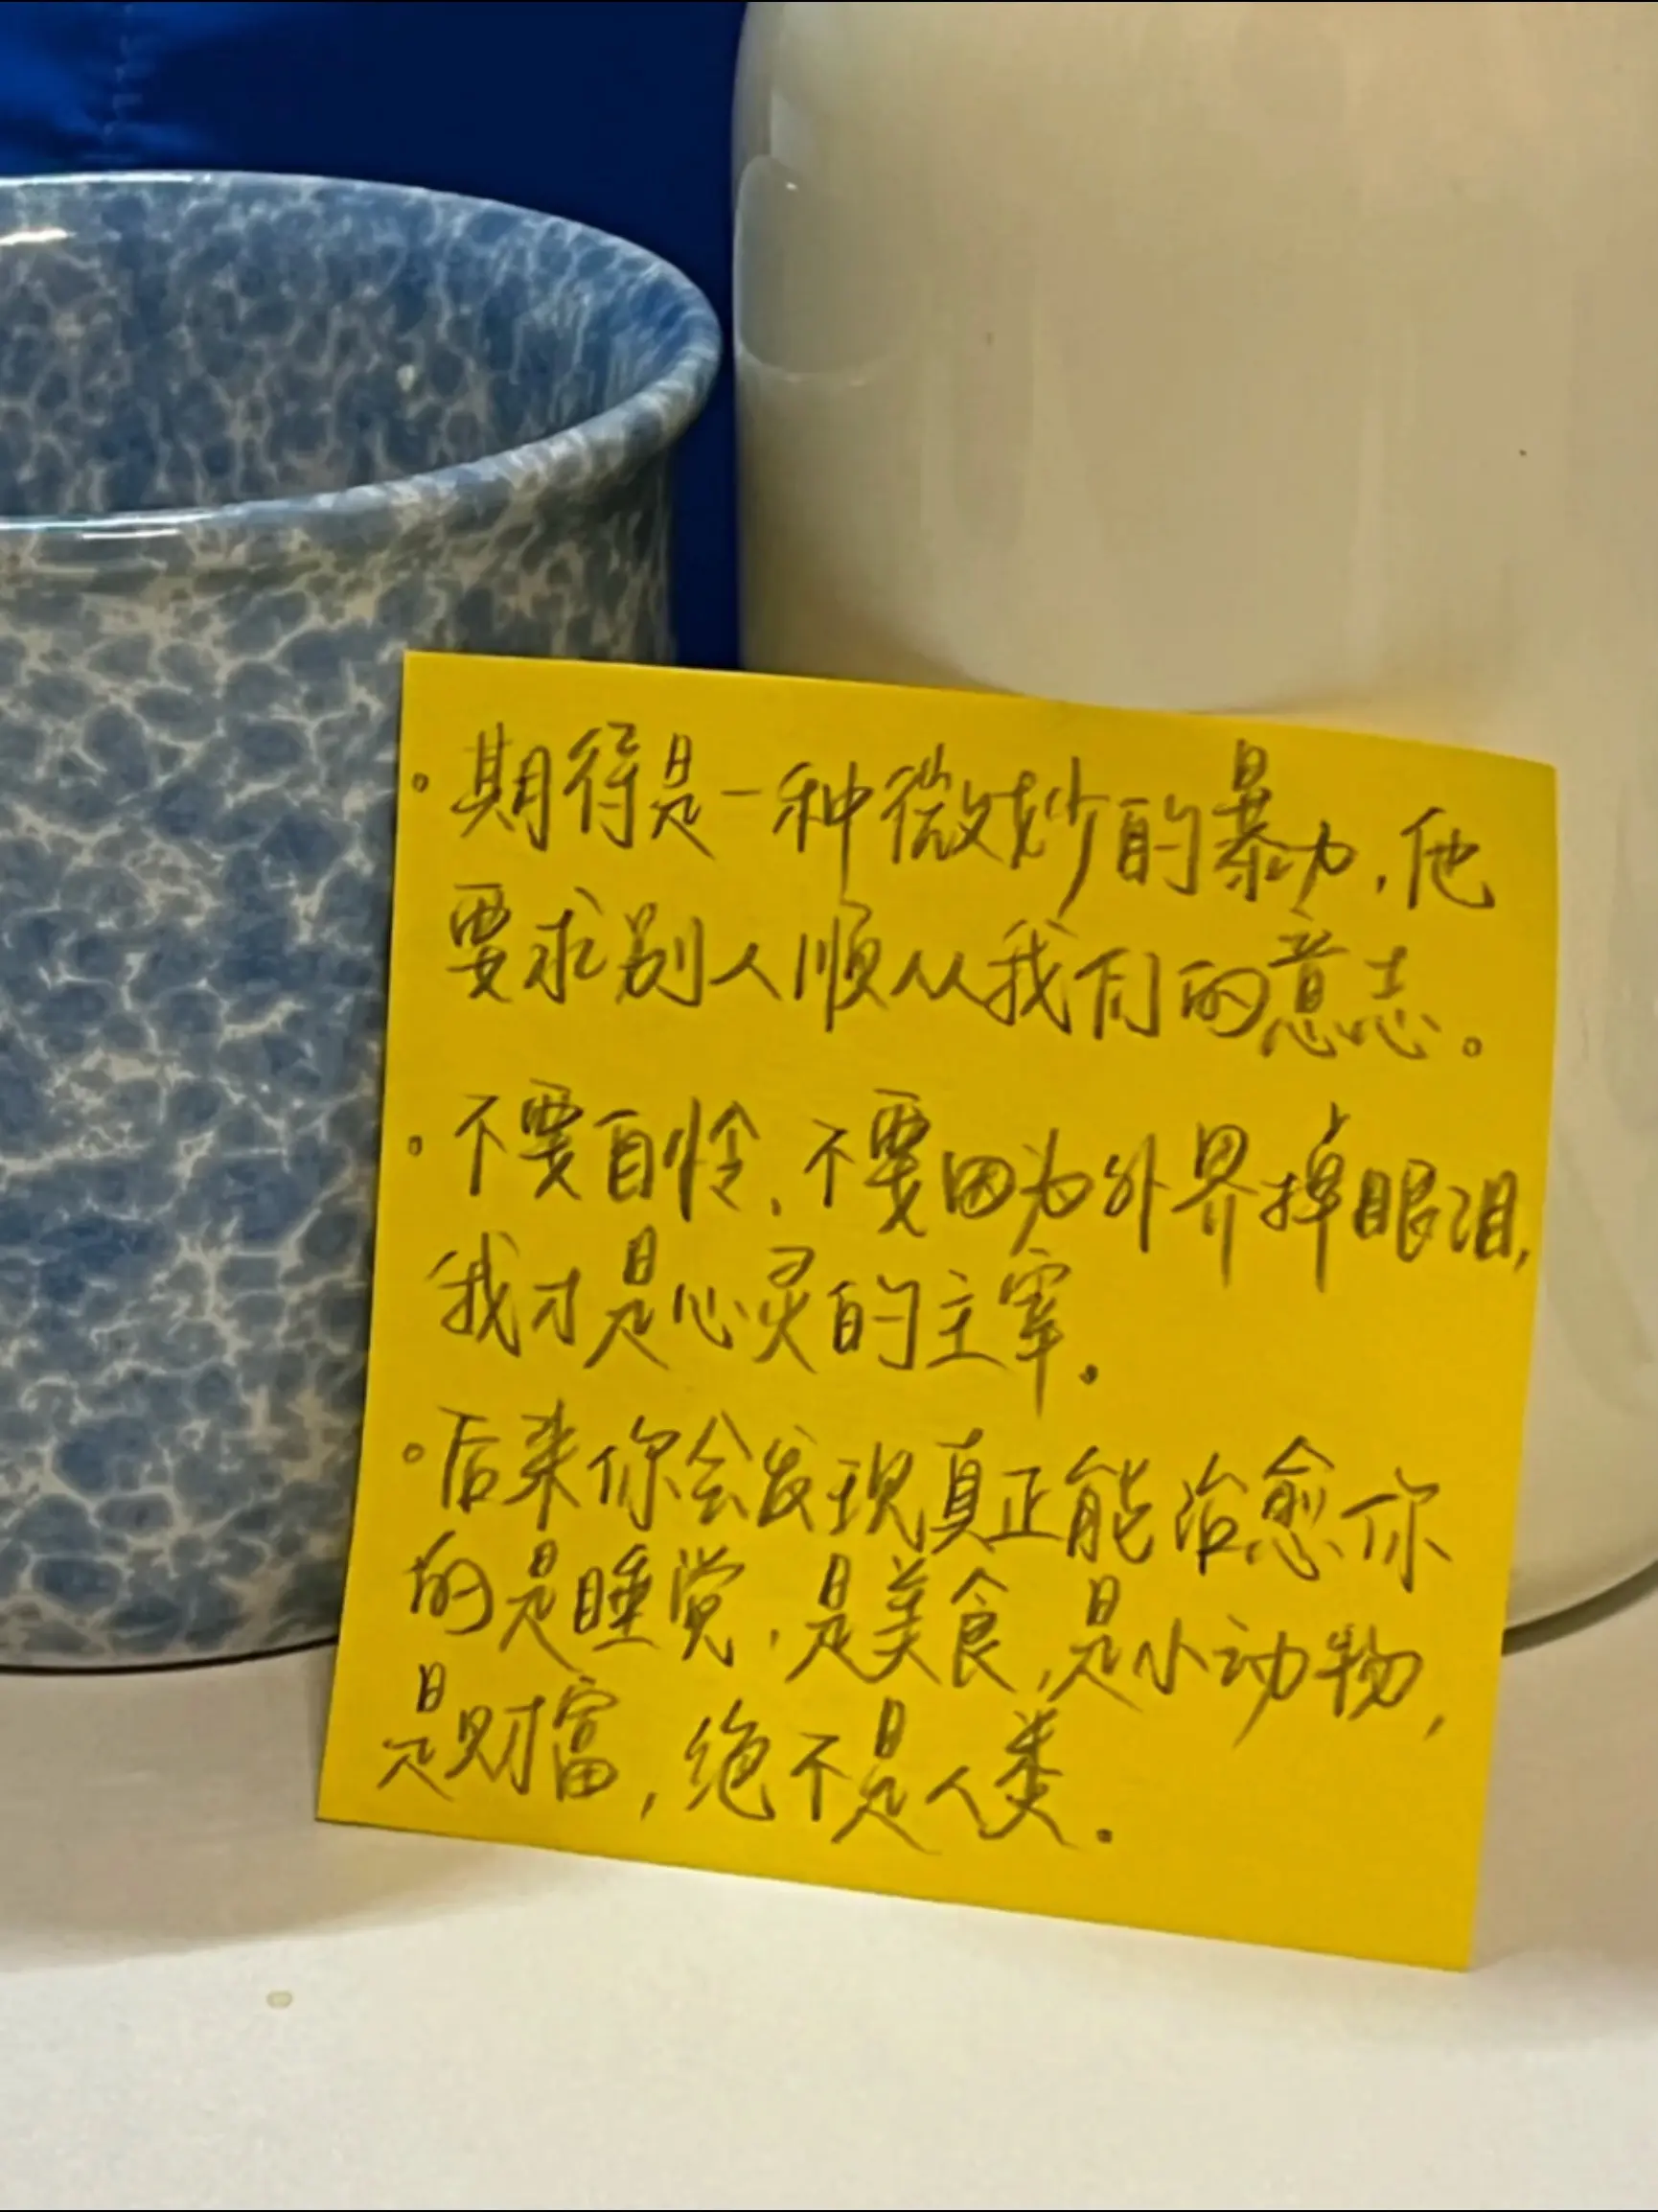 。期待是一种微妙的暴力,他
要求别人顺从我们的意志。
。不要自怜、不要因为外界掉眼泪,
我才是心灵的主宰。
。后来你会发现真正能治愈你
的是睡觉,是美食,是小动物,
是财富,绝不是人类。